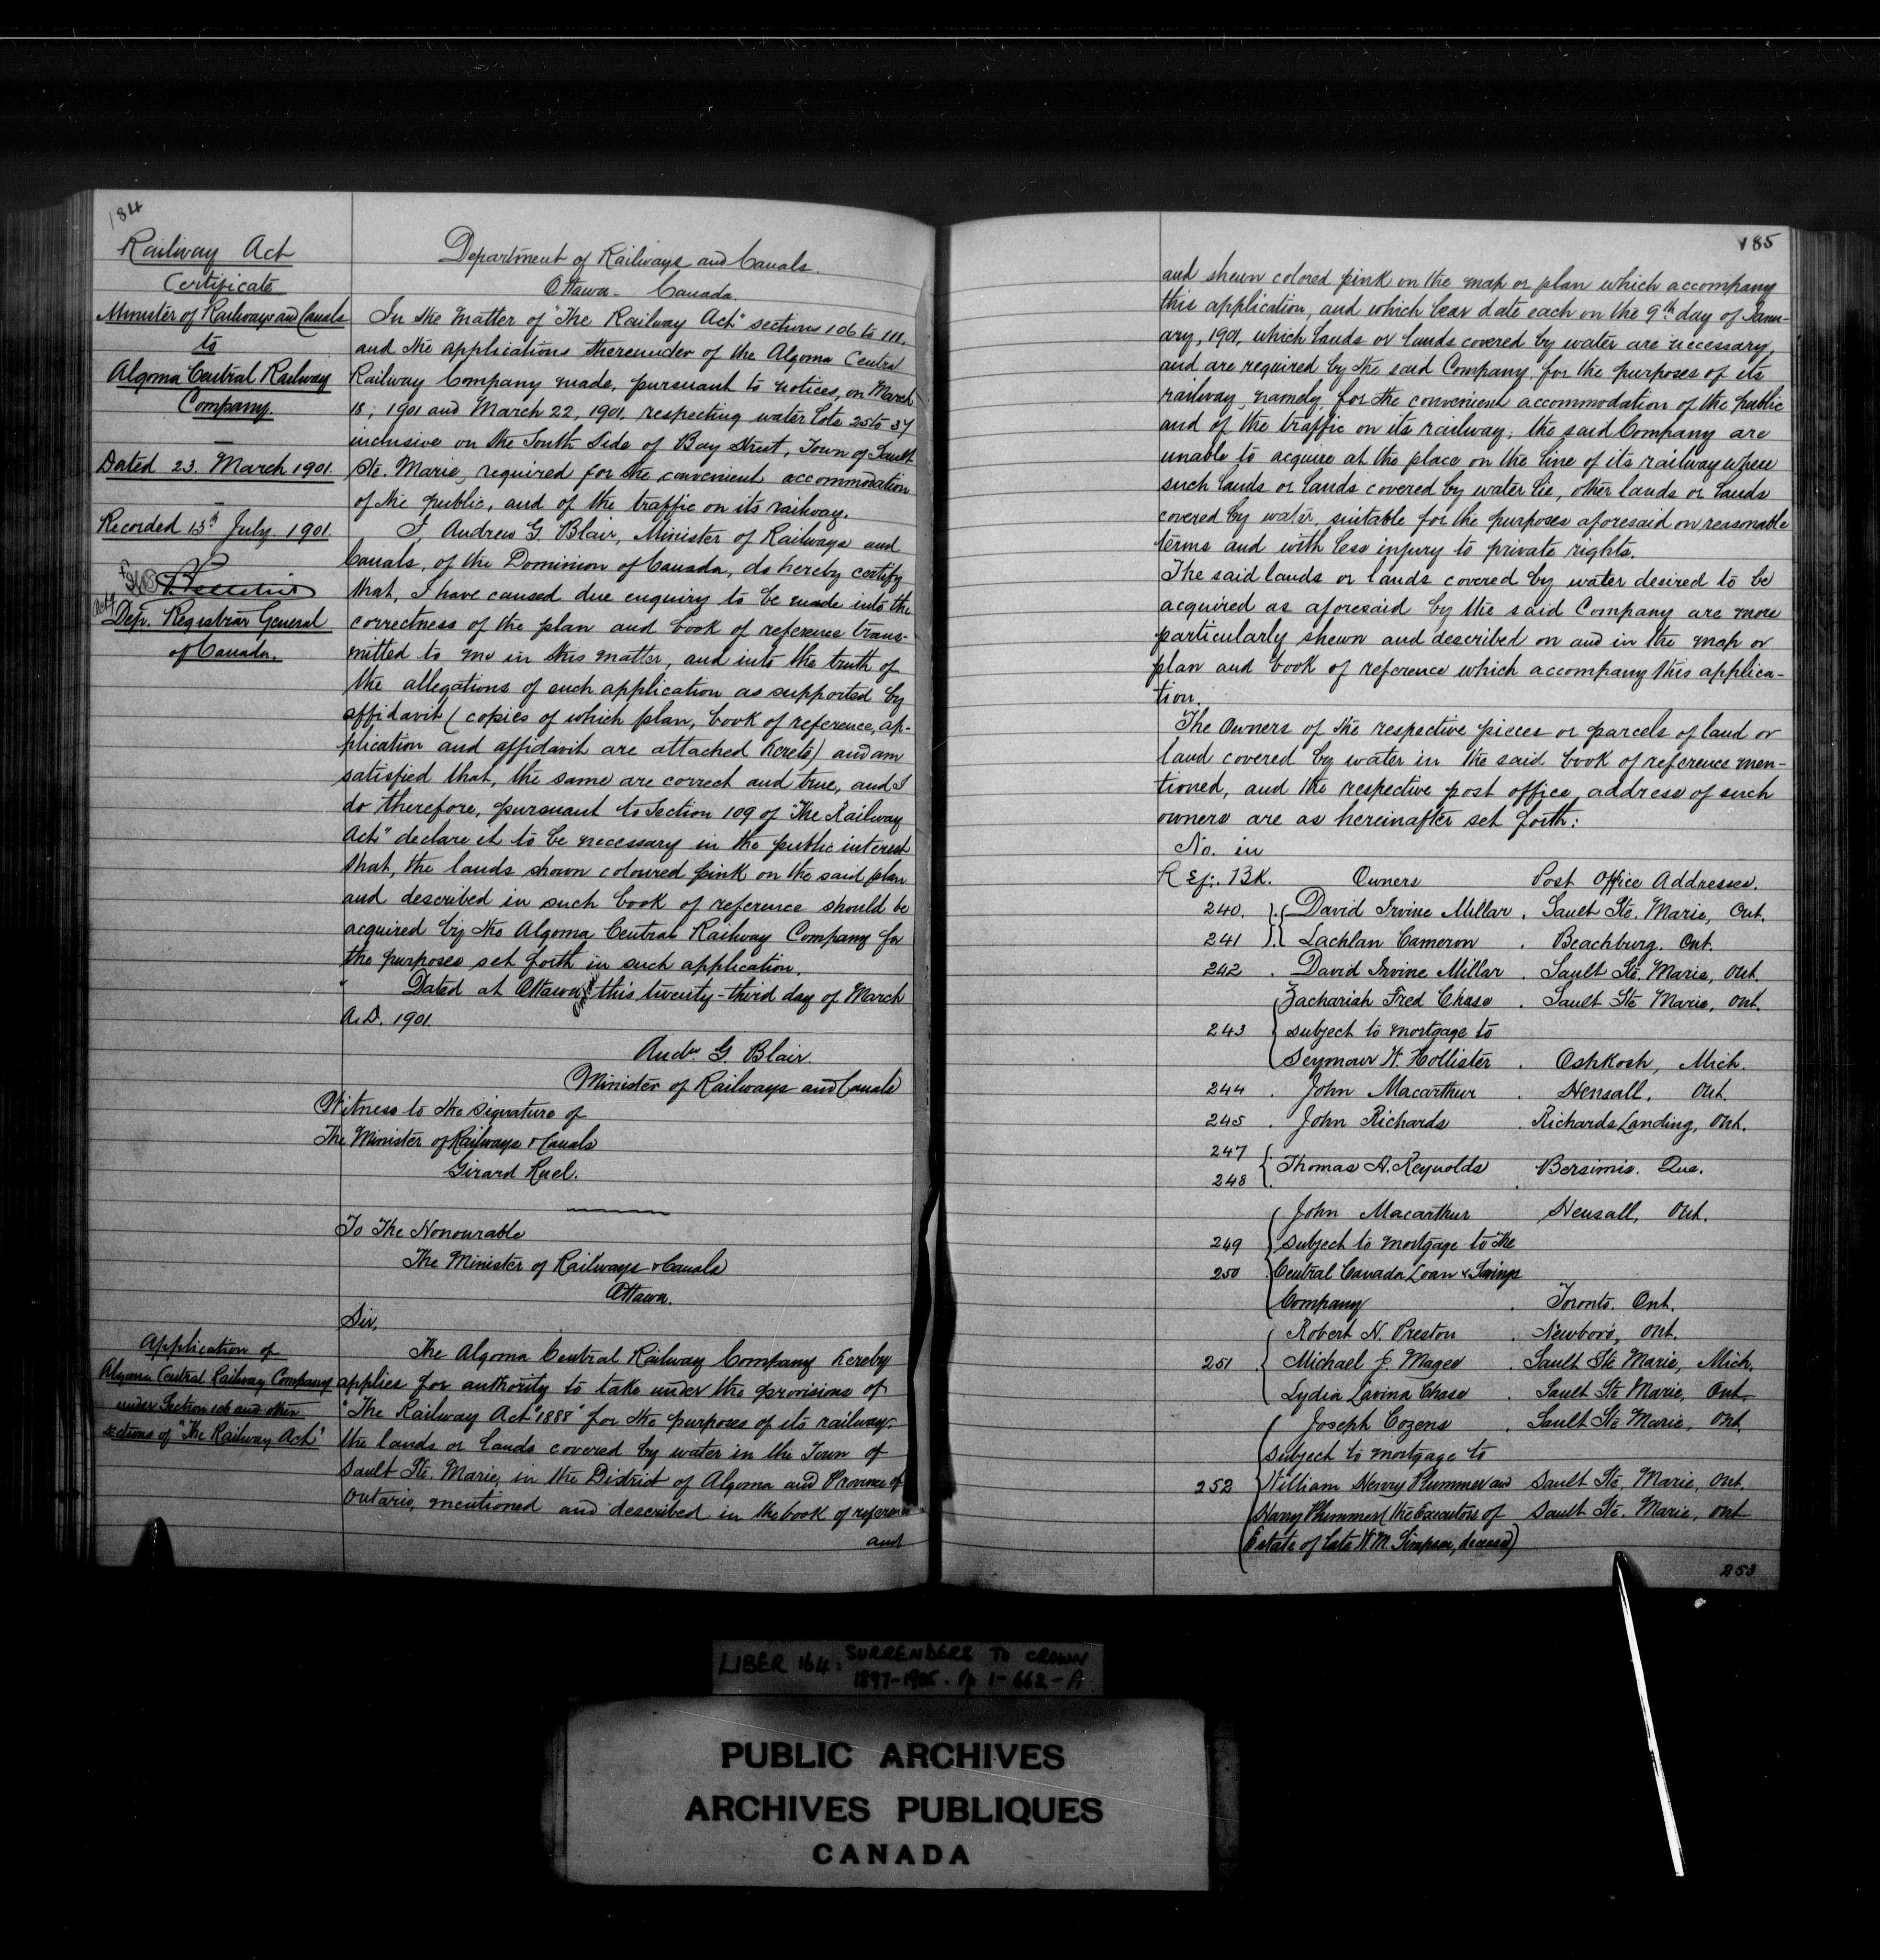 184
Railway Act
Certificate
Minister of Railways and Canals
to
Algoma Central Railway
Company.
Dated 23. March 1901.
Recorded 15th July. 1901.
Dep. Registrar General
of Canada.
Department of Railways and Canals.
Ottawa - Canada.
In the matter of "The Railway Act" sections 106 to 111.
and the applications thereunder of the Algoma Central
Railway Company made, pursuant to notices, on March
18, 1901 and March 22, 1901, respecting water lots 25 to 37
inclusive on the South Side of Bay Street, Town of Sault
Ste. Marie, required for the convenient accommodation
of the public, and of the traffic on its railway.
I, Andrew G. Blair, Minister of Railways and
Canals, of the Dominion of Canada, do hereby certify
that, I have caused due enquiry to be made into the
correctness of the plan and book of reference trans-
mitted to me in this matter, and into the truth of
the allegations of such application as supported by
affidavit (copies of which plan, book of reference, ap-
plication and affidavit are attached hereto) and am
satisfied that, the same are correct and true, and I
do therefore, pursuant to Section 109 of "The Railway
Act" declare it to be necessary in the public interest
that, the lands shown coloured pink on the said plan
and described in such book of reference should be
acquired by the Algoma Central Railway Company for
the purposes set forth in such application.
Dated at Ottawa this twenty-third day of March
A.D. 1901.
Andw. G. Blair.
Minister of Railways and Canals
Witness to the signature of
The Minister of Railways & Canals
Girard Ruel.
To The Honourable
The Minister of Railways & Canals
Ottawa.
Sir,
Application of
Algoma Central Railway Company
under Section 106 and other
sections of "The Railway Act"
The Algoma Central Railway Company hereby
applies for authority to take under the provisions of
"The Railway Act "1888" for the purposes of its railway
the lands or lands covered by water in the Town of
Sault Ste. Marie, in the District of Algoma and Province of
Ontario, mentioned and described in the book of reference
and
185
and shewn colored pink on the map or plan which accompany
this application, and which bear date each on the 9th day of Janu-
ary, 1901, which lands or lands covered by water are necessary,
and are required by the said Company for the purposes of its
railway, namely, for the convenient accommodation of the public
and of the traffic on its railway; the said Company are
unable to acquire at the place on the line of its railway where
such lands or lands covered by water lie, other lands or lands
covered by water, suitable for the purposes aforesaid on reasonable
terms and with less injury to private rights.
The said lands or lands covered by water desired to be
acquired as aforesaid by the said Company are more
particularly shewn and described on and in the map or
plan and book of reference which accompany this applica-
tion.
The Owners of the respective pieces or parcels of land or
land covered by water in the said book of reference men-
tioned, and the respective post office, address of such
owners are as hereinafter set forth:
No. in
Ref. Bk. Owners Post Office Addresses.
240. David Irvine Millar. Sault Ste. Marie, Ont.
241 Lachlan Cameron. Beachburg. Ont.
242. David Irvine Millar. Sault Ste. Marie, Ont.
Zachariah Fred Chase. Sault Ste Marie, Ont.
243 subject to mortgage to
Seymour W. Hollister. Oshkosh, Mich.
244. John Macarthur. Hensall, Ont.
245. John Richards. Richards Landing, Ont.
247
Thomas A. Reynolds Bersimis. Que.
248
John Macarthur Hensall, Ont.
249 subject to mortgage to The
250 Central Canada Loan & Savings
Company. Toronto. Ont.
Robert H. Preston. Newboro, Ont.
251. Michael J. Magee. Sault Ste Marie, Mich.
Lydia Lavina Chase. Sault Ste Marie, Ont.
Joseph Cozens. Sault Ste Marie, Ont.
subject to mortgage to
252 William Henry Plummer and Sault Ste. Marie, Ont.
Harry Plummer (the Executors of Sault Ste. Marie, Ont
Estate of late W. M. Simpson, deceased)
253
LIBER 164: SURRENDERS TO CROWN
1897-1905. Pp 1-662-A
PUBLIC ARCHIVES
ARCHIVES PUBLIQUES
CANADA